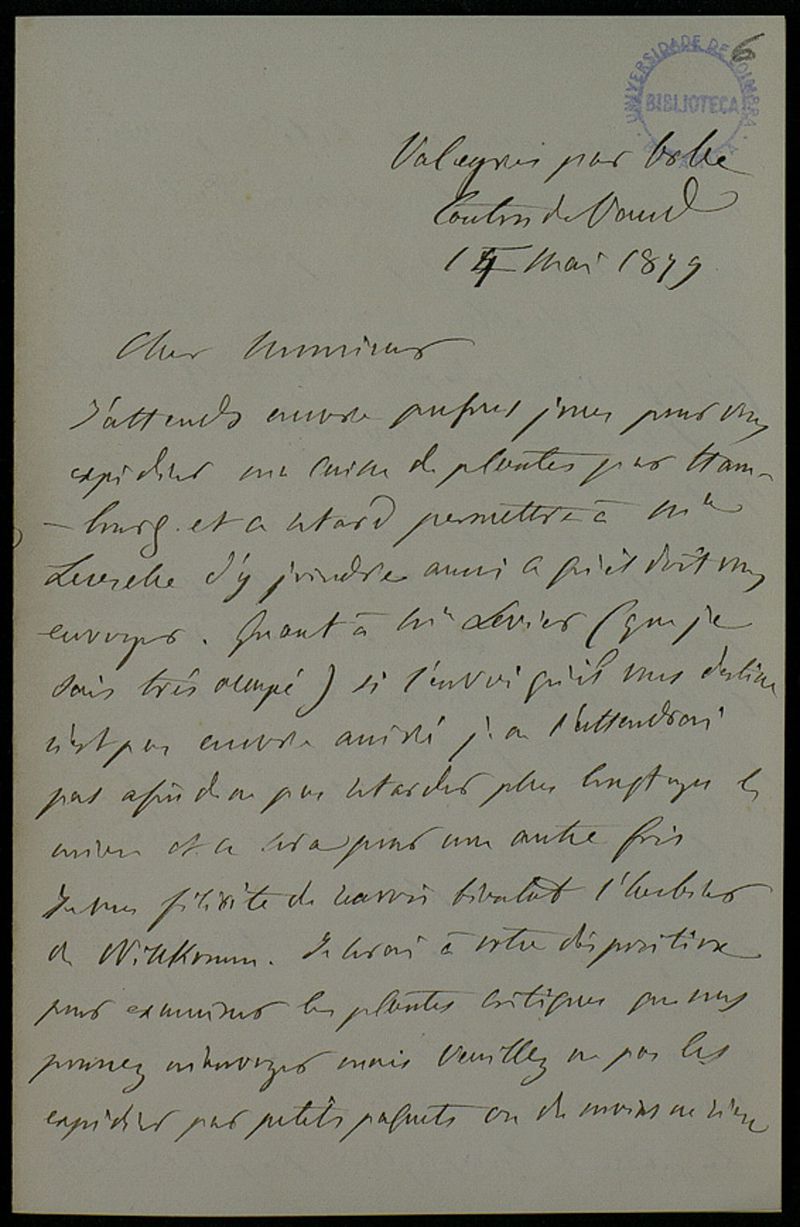 6
UNIVERSIDADE DE COIMBRA
BIBLIOTECA
Valeyres par Orbe
Canton de Vaud
14 Mai 1879
Cher Monsieur
J'attends encore quelques jours pour vous
expédier une caisse de plantes par Ham-
-burg. et ce retard permettra à Mr
d'y joindre aussi ce qu'il doit vous
envoyer. Quant à Mr Levier (que je
sais très occupé) si l'envoi qu'il vous destine
n'est pas encore arrivé je ne l'attendrai
pas afin de ne pas retarder plus longtemps le
mien et ce sera pour une autre fois
Je vous félicite de recevoir bientôt l'herbier
de Willkomm. Je serai à votre disposition
pour examiner les plantes critiques que vous
pourrez m'envoyer mais veuillez ne pas les
expédier par petits paquets ou du moins ne rien